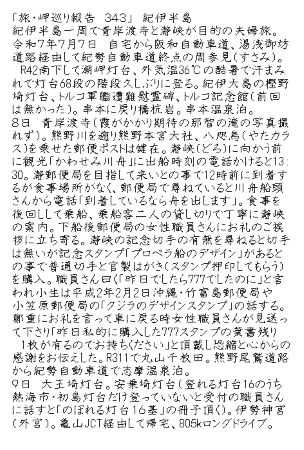 「旅・岬巡り報告 343」 紀伊半島
紀伊半島一周で青岸渡寺と瀞峡が目的の夫婦旅。
令和7年7月7日 自宅から阪和自動車道、湯浅御坊
道路経由して紀勢自動車道終点の周参見(すさみ)。
R42南下して潮岬灯台、外気温36℃の酷暑で汗まみ
れで灯台68段の階段久しぶりに登る。紀伊大島の樫野
埼灯台、トルコ軍艦遭難慰霊碑、トルコ記念館(前回
は無かった)。串本に戻り橋杭岩。串本温泉泊。
8日 青岸渡寺(霞がかかり期待の那智の滝の写真撮
れず)。熊野川を遡り熊野本宮大社、八咫烏(やたガラ
ス)を乗せた郵便ポストは健在。瀞峡(どろ)に向かう前
に観光「かわせみ川舟」に出船時刻の電話かけると13:
30。瀞郵便局を目指して来いとの事で12時前に到着す
るが食事場所がなく、郵便局で尋ねていると川舟船頭
さんから電話「到着しているなら舟を出します」。食事を
後回しして乗船、乗船客二人の貸し切りで丁寧に瀞峡
の案内。下船後郵便局の女性職員さんにお礼のご挨
拶に立ち寄る。瀞峡の記念切手の有無を尋ねると切手
は無いが記念スタンプ「プロペラ船のデザイン」があると
の事で普通切手と官製はがき(スタンプ押印してもらう)
を購入。職員さん曰く「昨日でしたら777でしたのに」と言
われ小生は平成2年2月2日沖縄・竹富島郵便局や
小笠原郵便局の「クジラのデザインスタンプ」の話する。
鄭重にお礼を言って車に戻る時女性職員さんが見送っ
て下さり「昨日私的に購入した777スタンプの葉書残り
1枚が有るのでお持ちください」と頂戴し恐縮と心からの
感謝をお伝えした。R311で丸山千枚田。熊野尾鷲道路
から紀勢自動車道で志摩温泉泊。
9日 大王埼灯台。安乗埼灯台(登れる灯台16のうち
熱海市・初島灯台だけ登っていないと受付の職員さん
に話すと「のぼれる灯台16基」の冊子頂く)。伊勢神宮
(外宮)。亀山JCT経由して帰宅、805kロングドライブ。